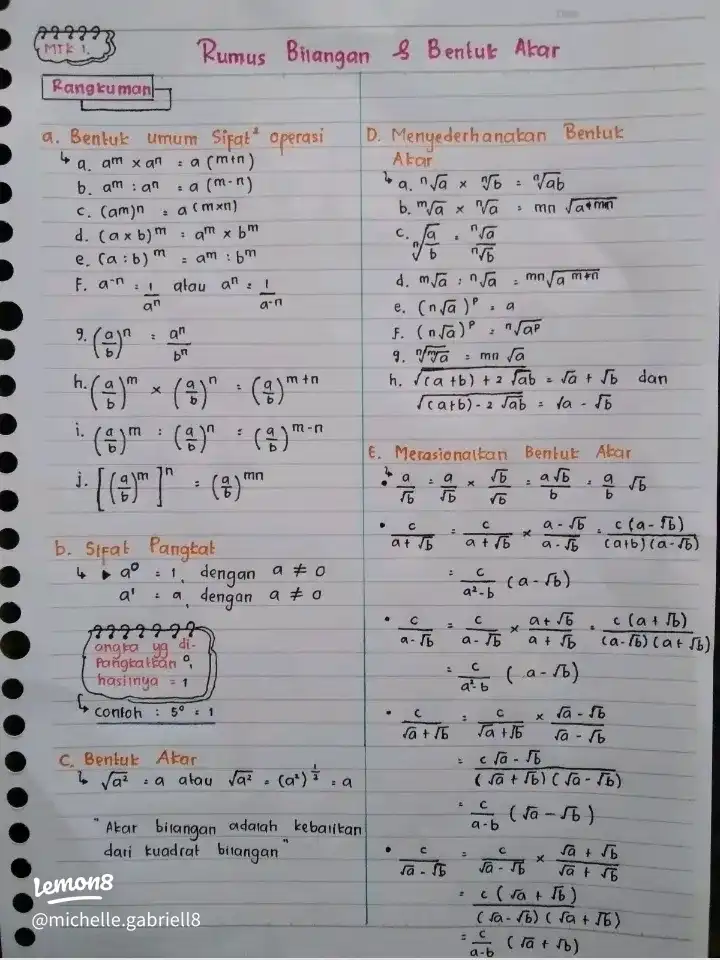 MTK 1.
Rumus Bilangan & Bentuk Akar
Rangkuman
a. Bentuk umum Sifat² operasi
↳ a. aᵐ × aⁿ = a (m+n)
b. aᵐ : aⁿ = a (m-n)
c. (am)ⁿ = a (m×n)
d. (a × b)ᵐ = aᵐ × bᵐ
e. (a : b)ᵐ = aᵐ : bᵐ
F. a⁻ⁿ = 1/aⁿ atau aⁿ = 1/a⁻ⁿ
g. (a/b)ⁿ = aⁿ/bⁿ
h. (a/b)ᵐ × (a/b)ⁿ = (a/b)ᵐ⁺ⁿ
i. (a/b)ᵐ : (a/b)ⁿ = (a/b)ᵐ⁻ⁿ
j. [(a/b)ᵐ]ⁿ = (a/b)ᵐⁿ
b. Sifat Pangkat
↳ ▸ a⁰ = 1, dengan a ≠ 0
a¹ = a, dengan a ≠ 0
angka yg di-
Pangkatkan 0,
hasilnya = 1
↳ contoh : 5⁰ = 1
C. Bentuk Akar
↳ √a² = a atau √a² = (a²)^½ = a
"Akar bilangan adalah kebalikan
dari kuadrat bilangan"
D. Menyederhanakan Bentuk
Akar
↳ a. ⁿ√a × ⁿ√b = ⁿ√ab
b. ᵐ√a × ⁿ√a = mn √a+mn
c. ⁿ√(a/b) = ⁿ√a/ⁿ√b
d. m√a : n√a = ᵐⁿ√a m+n
e. (n√a)ᵖ = a
F. (n√a)ᵖ = ⁿ√aᵖ
g. ⁿ√ᵐ√a = mn √a
h. √(a+b) + 2√ab = √a + √b dan
√(a+b) - 2√ab = √a - √b
E. Merasionalkan Bentuk Akar
↳ • a/√b = a/√b × √b/√b = a√b/b = a/b √b
• c/(a+√b) = c/(a+√b) × (a-√b)/(a-√b) = c(a-√b)/(a+b)(a-√b)
= c/(a²-b) (a-√b)
• c/(a-√b) = c/(a-√b) × (a+√b)/(a+√b) = c(a+√b)/(a-√b)(a+√b)
= c/(a²-b) (a-√b)
• c/(√a+√b) = c/(√a+√b) × (√a-√b)/(√a-√b)
= c√a-√b/(√a+√b)(√a-√b)
= c/(a-b) (√a-√b)
• c/(√a-√b) = c/(√a-√b) × (√a+√b)/(√a+√b)
= c(√a+√b)/(√a-√b)(√a+√b)
= c/(a-b) (√a+√b)
lemon8
@michelle.gabriell8